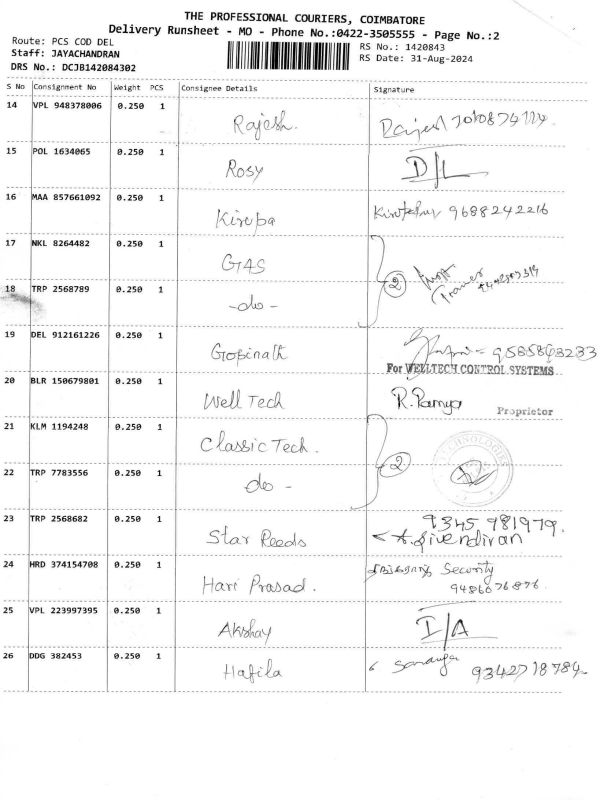 THE PROFESSIONAL COURIERS, COIMBATORE
Delivery Runsheet - MO - Phone No.:0422-3505555 - Page No.:2
Route: PCS COD DEL
RS No.: 1420843
Staff: JAYACHANDRAN
RS Date: 31-Aug-2024
DRS No.: DCJB142084302
S No Consignment No Weight PCS Consignee Details Signature
14 VPL 948378006 0.250 1 Rajesh.
15 POL 1634065 0.250 1 Rosy D/L
16 MAA 857661092 0.250 1 Kirupa 9688242216
17 NKL 8264482 0.250 1 GAS
18 TRP 2568789 0.250 1 -do- 2
19 DEL 912161226 0.250 1 Gopinath
For WELLTECH CONTROL SYSTEMS
20 BLR 150679801 0.250 1 Well Tech R. Ramya
Proprietor
21 KLM 1194248 0.250 1 Classic Tech.
22 TRP 7783556 0.250 1 -do- 2
23 TRP 2568682 0.250 1 Star Reeds 9345 981979.
24 HRD 374154708 0.250 1 Hari Prasad. Security
9486676876
25 VPL 223997395 0.250 1 Akshay I/A
26 DDG 382453 0.250 1 Hafila 9342718784